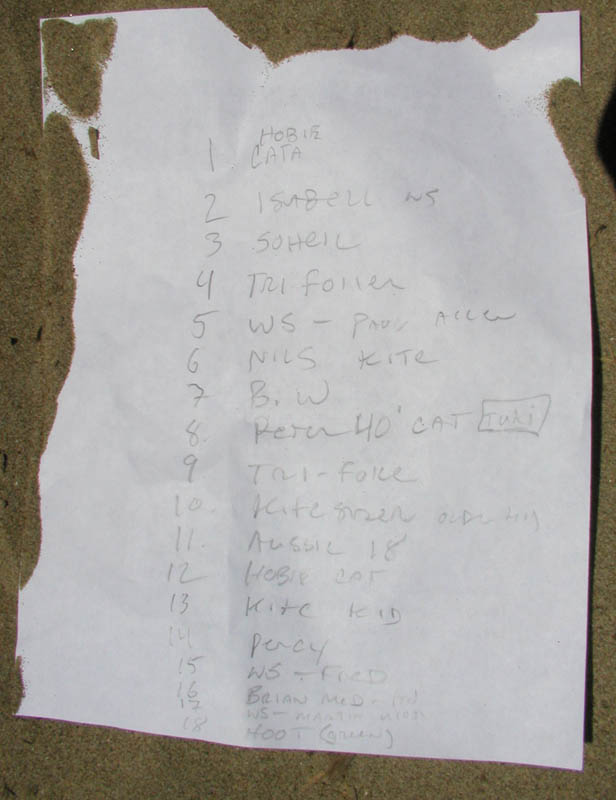 1 HOBIE CATA
2 ISABELL WS
3 SOHEIL
4 TRI foiler
5 WS - PAUL ALLEN
6 NILS KITE
7 B. W
8. Peter 40' CAT TUKI
9 TRI-FOILE
10. Kite
11. AUSSIE 18'
12 HOBIE CAT
13 KITE KID
14 Percy
15 WS - FRED
16 BRIAN McD -
17 WS - MARTIN
18 HOOT (green)